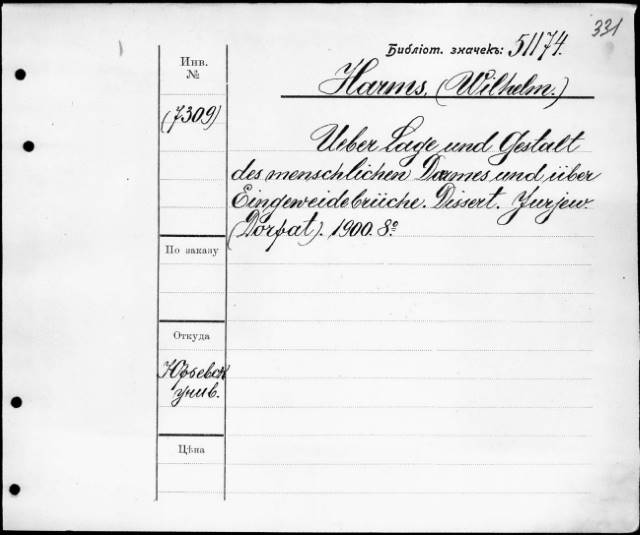 331
Библіот. значекъ: 51174.
Инв.
№
Harms, (Wilhelm.)
(7309)
Ueber Lage und Gestalt
des menschlichen Darmes und über
Eingeweidebrüche. Dissert. Jurjew.
(Dorpat). 1900. 8º
По заказу
Откуда
Юрьевск
унив.
Цѣна